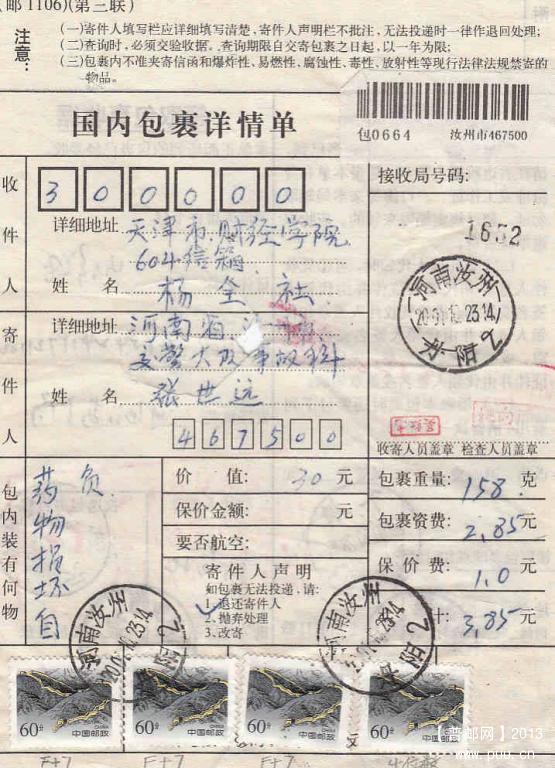 (邮1106)(第三联)
注意：
(一)寄件人填写栏应详细填写清楚，寄件人声明栏不批注，无法投递时一律作退回处理；
(二)查询时，必须交验收据。查询期限自交寄包裹之日起，以一年为限；
(三)包裹内不准夹寄信函和爆炸性、易燃性、腐蚀性、毒性、放射性等现行法律法规禁寄的物品。
国内包裹详情单
包0664 汝州市467500
接收局号码:
1632
收件人
300000
详细地址 天津市财经学院
604信箱
姓名 杨全社
寄件人
详细地址 河南省
交警大队事故科
姓名 张世远
467500
河南汝州
收寄人员盖章 检查人员盖章
包内装有何物
药物损坏自负
价值: 30元
保价金额: 元
要否航空:
寄件人声明
如包裹无法投递，请:
1.退还寄件人
2.抛弃处理
3.改寄
包裹重量: 158克
包裹资费: 2.85元
保价费: 1.0元
计: 3.85元
河南汝州
河南汝州
60分 中国邮政 CHINA
60分 中国邮政 CHINA
60分 中国邮政 CHINA
60分 中国邮政
【普邮网】2013
www.pu0.cn